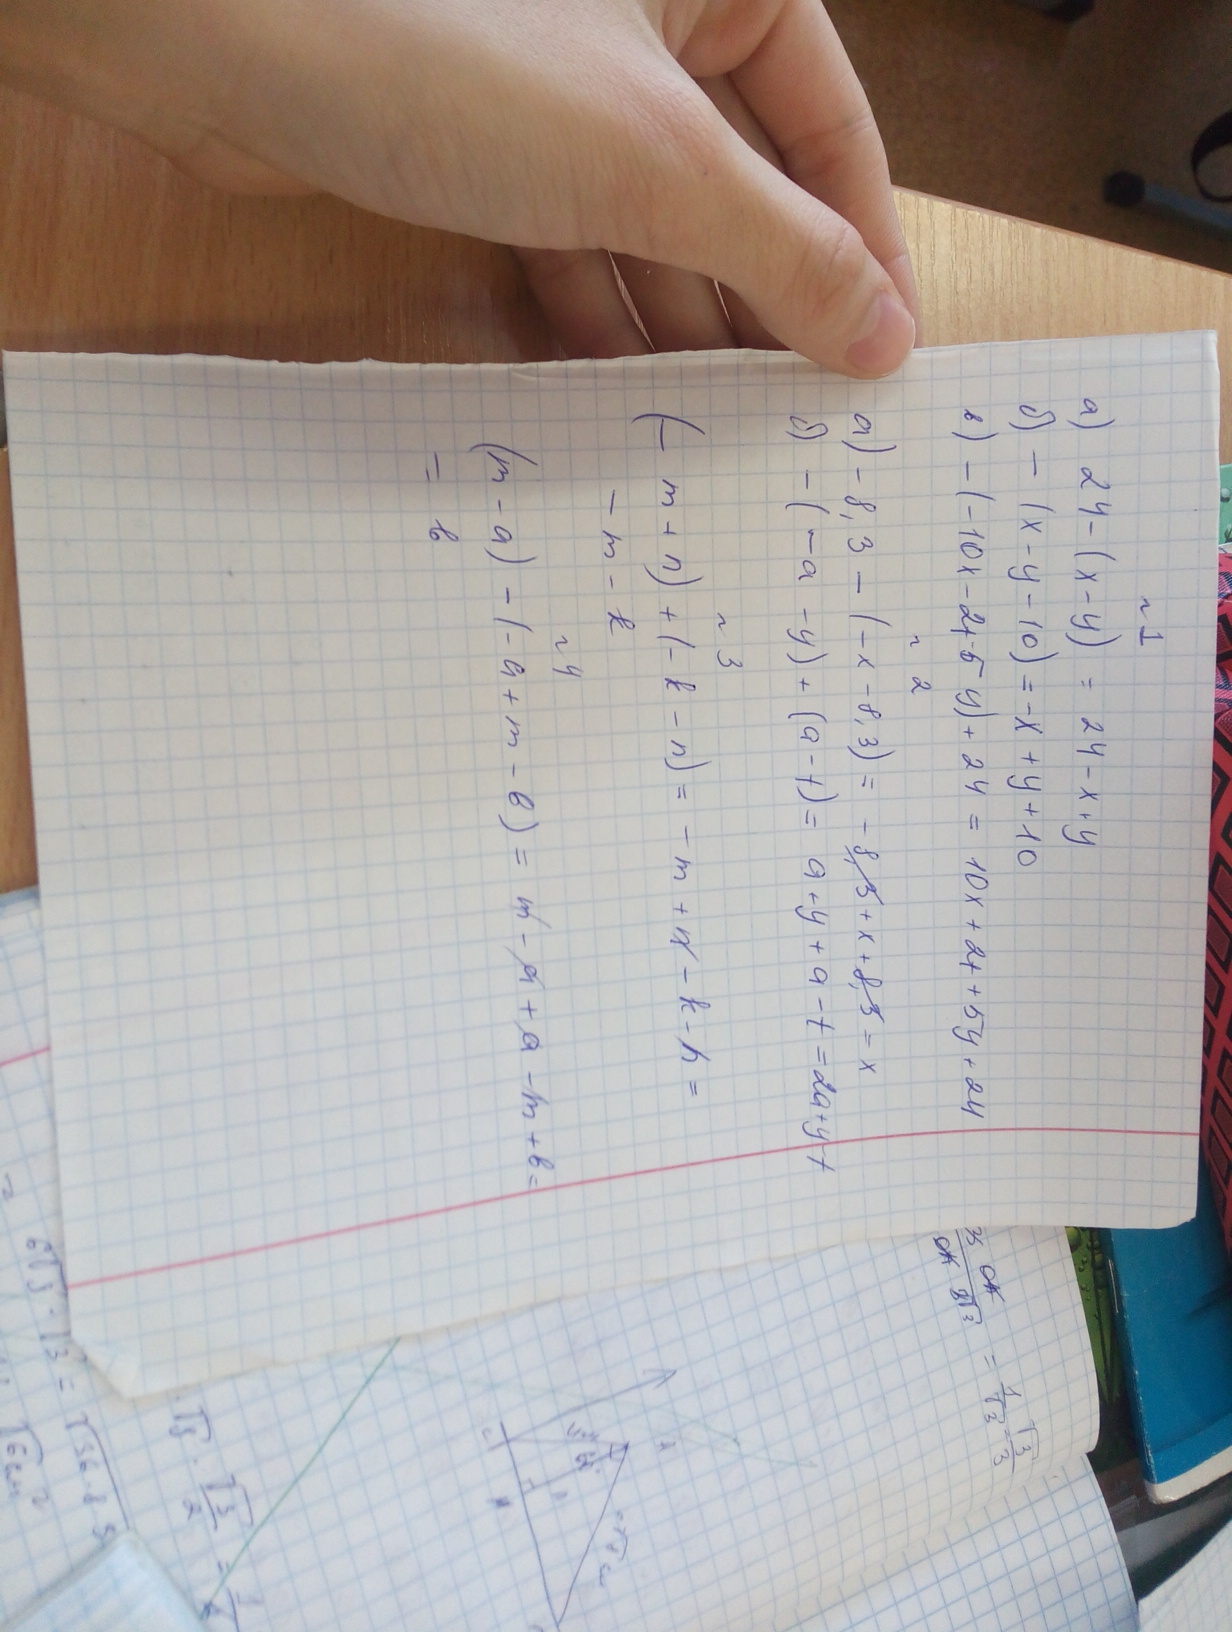 ~1
а) 24-(x-y) = 24-x+y
б) -(x-y-10)=-x+y+10
в) -(-10x-2t-5y)+24 = 10x+2t+5y+24
~2
а) -8,3-(-x-8,3)= -8,3+x+8,3=x
б) -(-a-y)+(a-t)= a+y+a-t=2a+y-t
~3
(-m+n)+(-k-n)=-m+n-k-n=
-m-k
~4
(m-a)-(-a+m-в)= m-a+a-m+в=
= в
= 1/√3 = √3/3